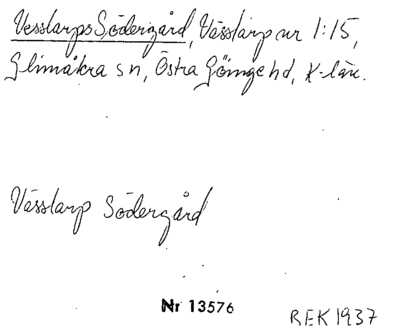 Vesslarps Södergård, Vässlarp nr 1:15,
Glimåkra sn, Östra Göinge hd, K-län.
Vässlarp Södergård
Nr 13576
BEK 1937